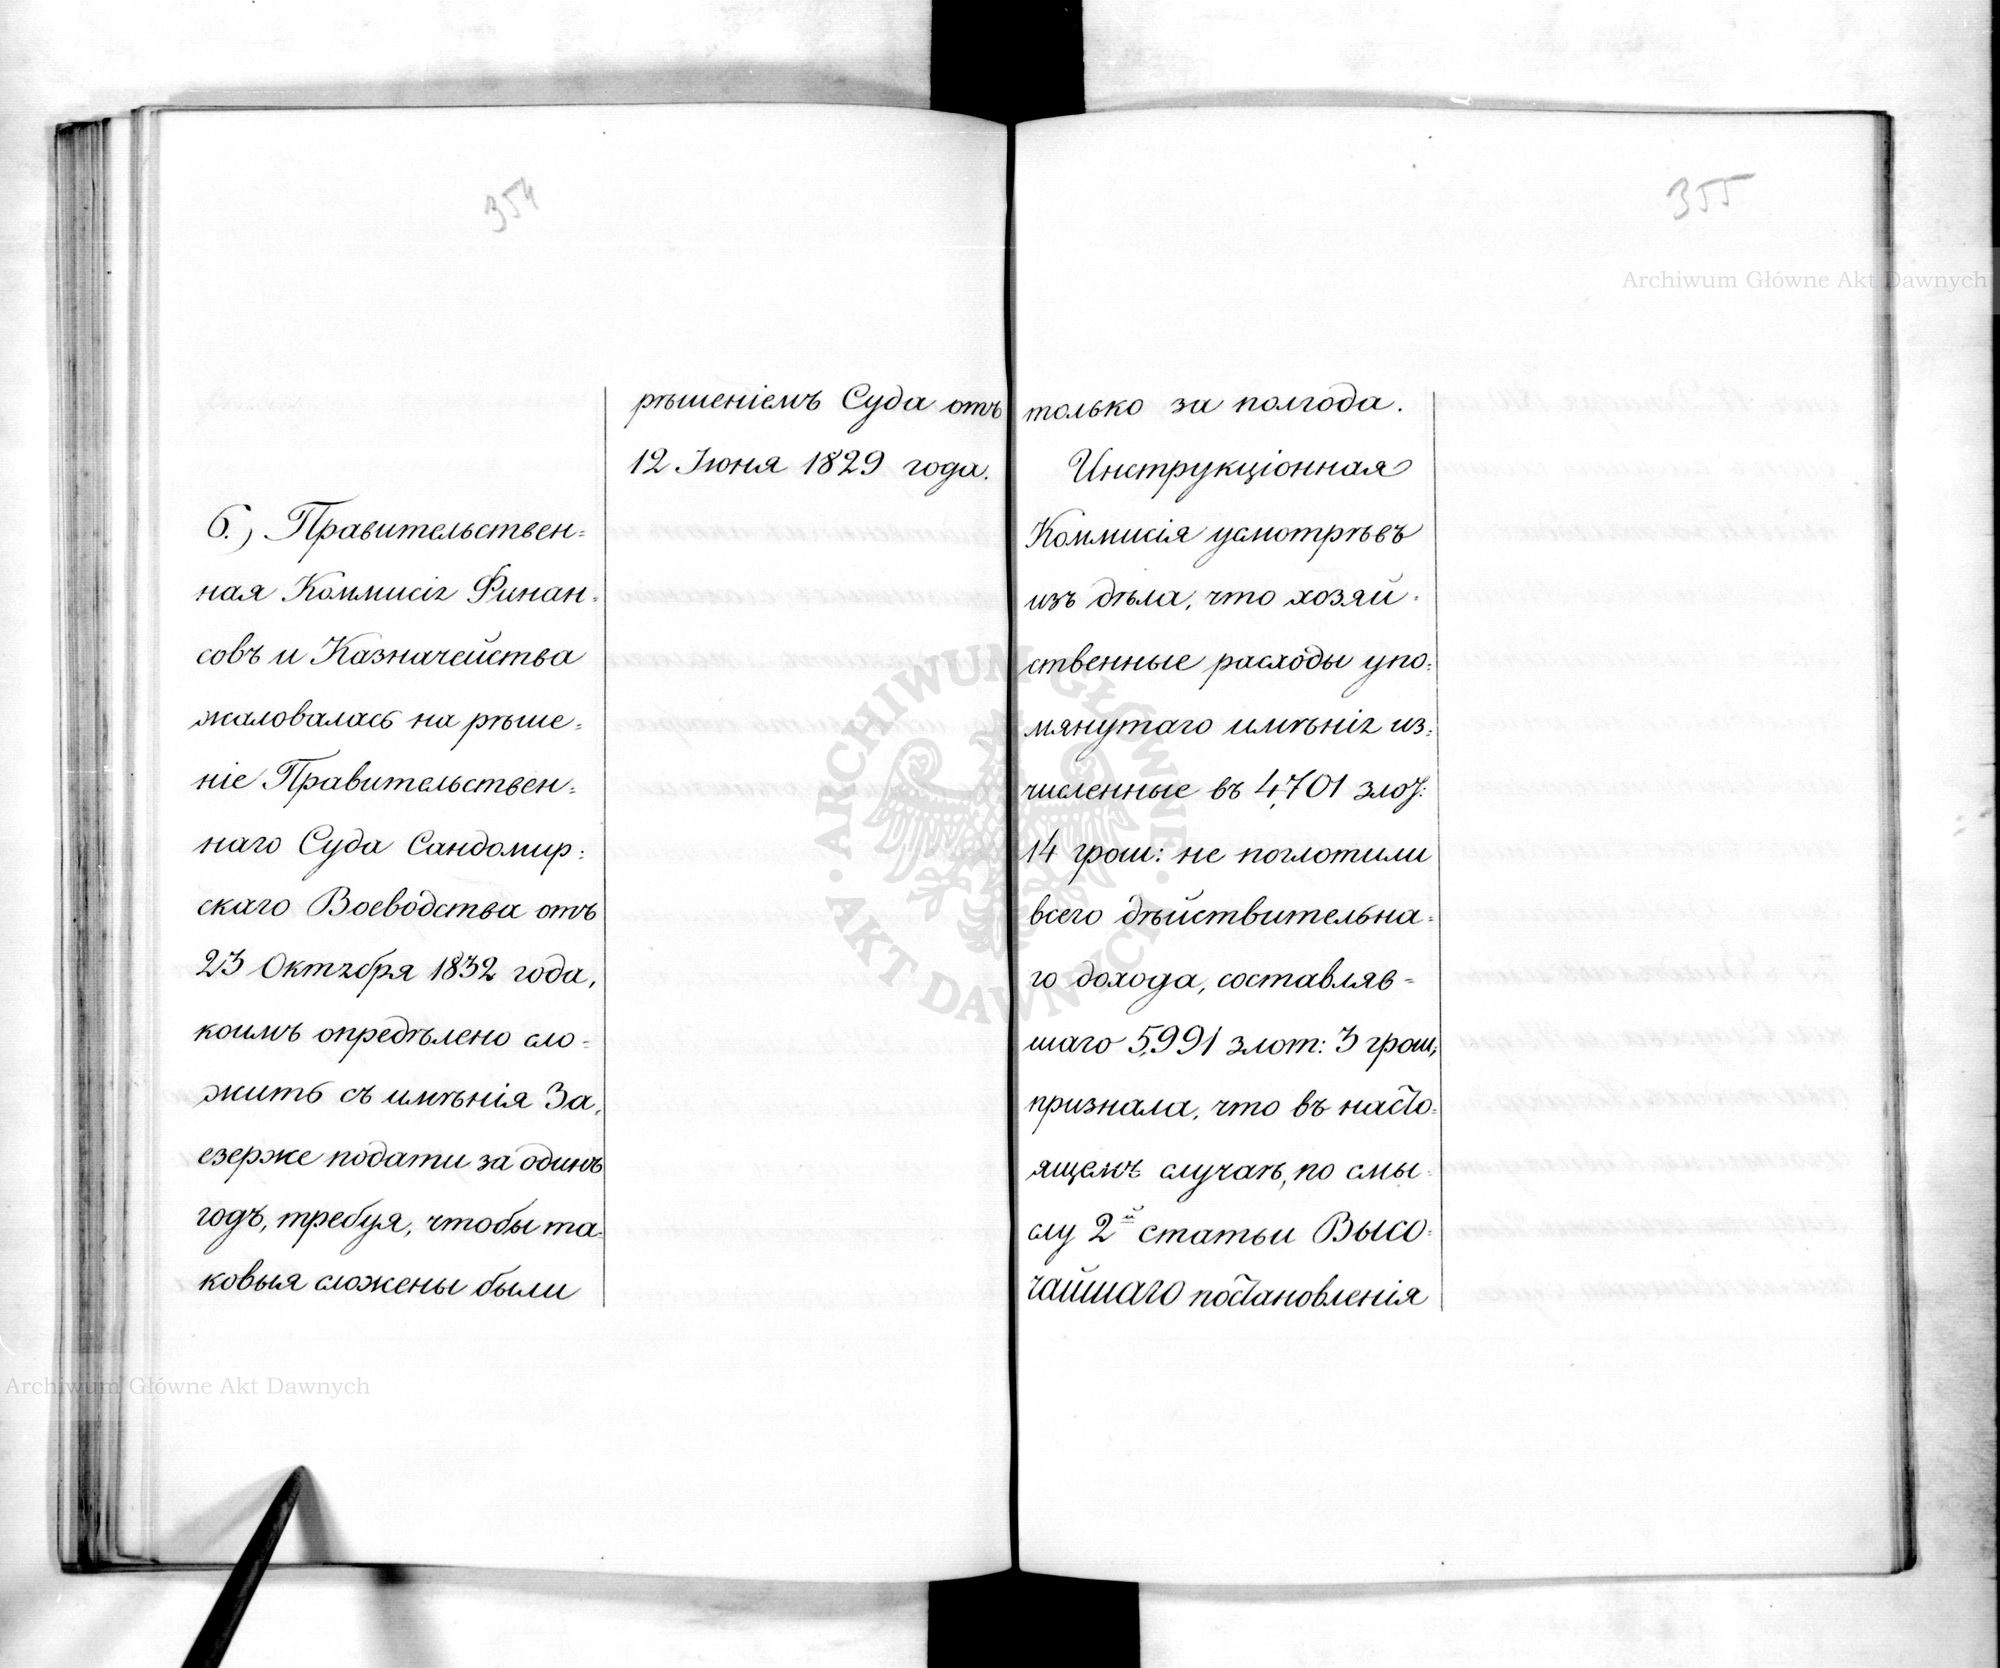 354
рѣшеніемъ Суда отъ
12 Іюня 1829 года.
6.) Правительствен=
ная Коммисія Финан=
совъ и Казначейства
жаловалась на рѣше=
ніе Правительствен=
наго Суда Сандомир=
скаго Воеводства отъ
23 Октября 1832 года,
коимъ опредѣлено сло=
жить съ имѣнія За=
езерже подати за одинъ
годъ, требуя, чтобы та=
ковыя сложены были
355
только за полгода.
Инструкціонная
Коммисія усмотрѣвъ
изъ дѣла, что хозяй=
ственные расходы упо=
мянутаго имѣнія из=
численные въ 4,701 злот:
14 грош: не поглотили
всего дѣйствительна=
го дохода, составляв=
шаго 5,991 злот: 3 грош;
признала, что въ насто=
ящемъ случаѣ, по смы=
слу 2й статьи Высо=
чайшаго постановленія
Archiwum Główne Akt Dawnych
ARCHIWUM GŁÓWNE · AKT DAWNYCH ·
Archiwum Główne Akt Dawnych